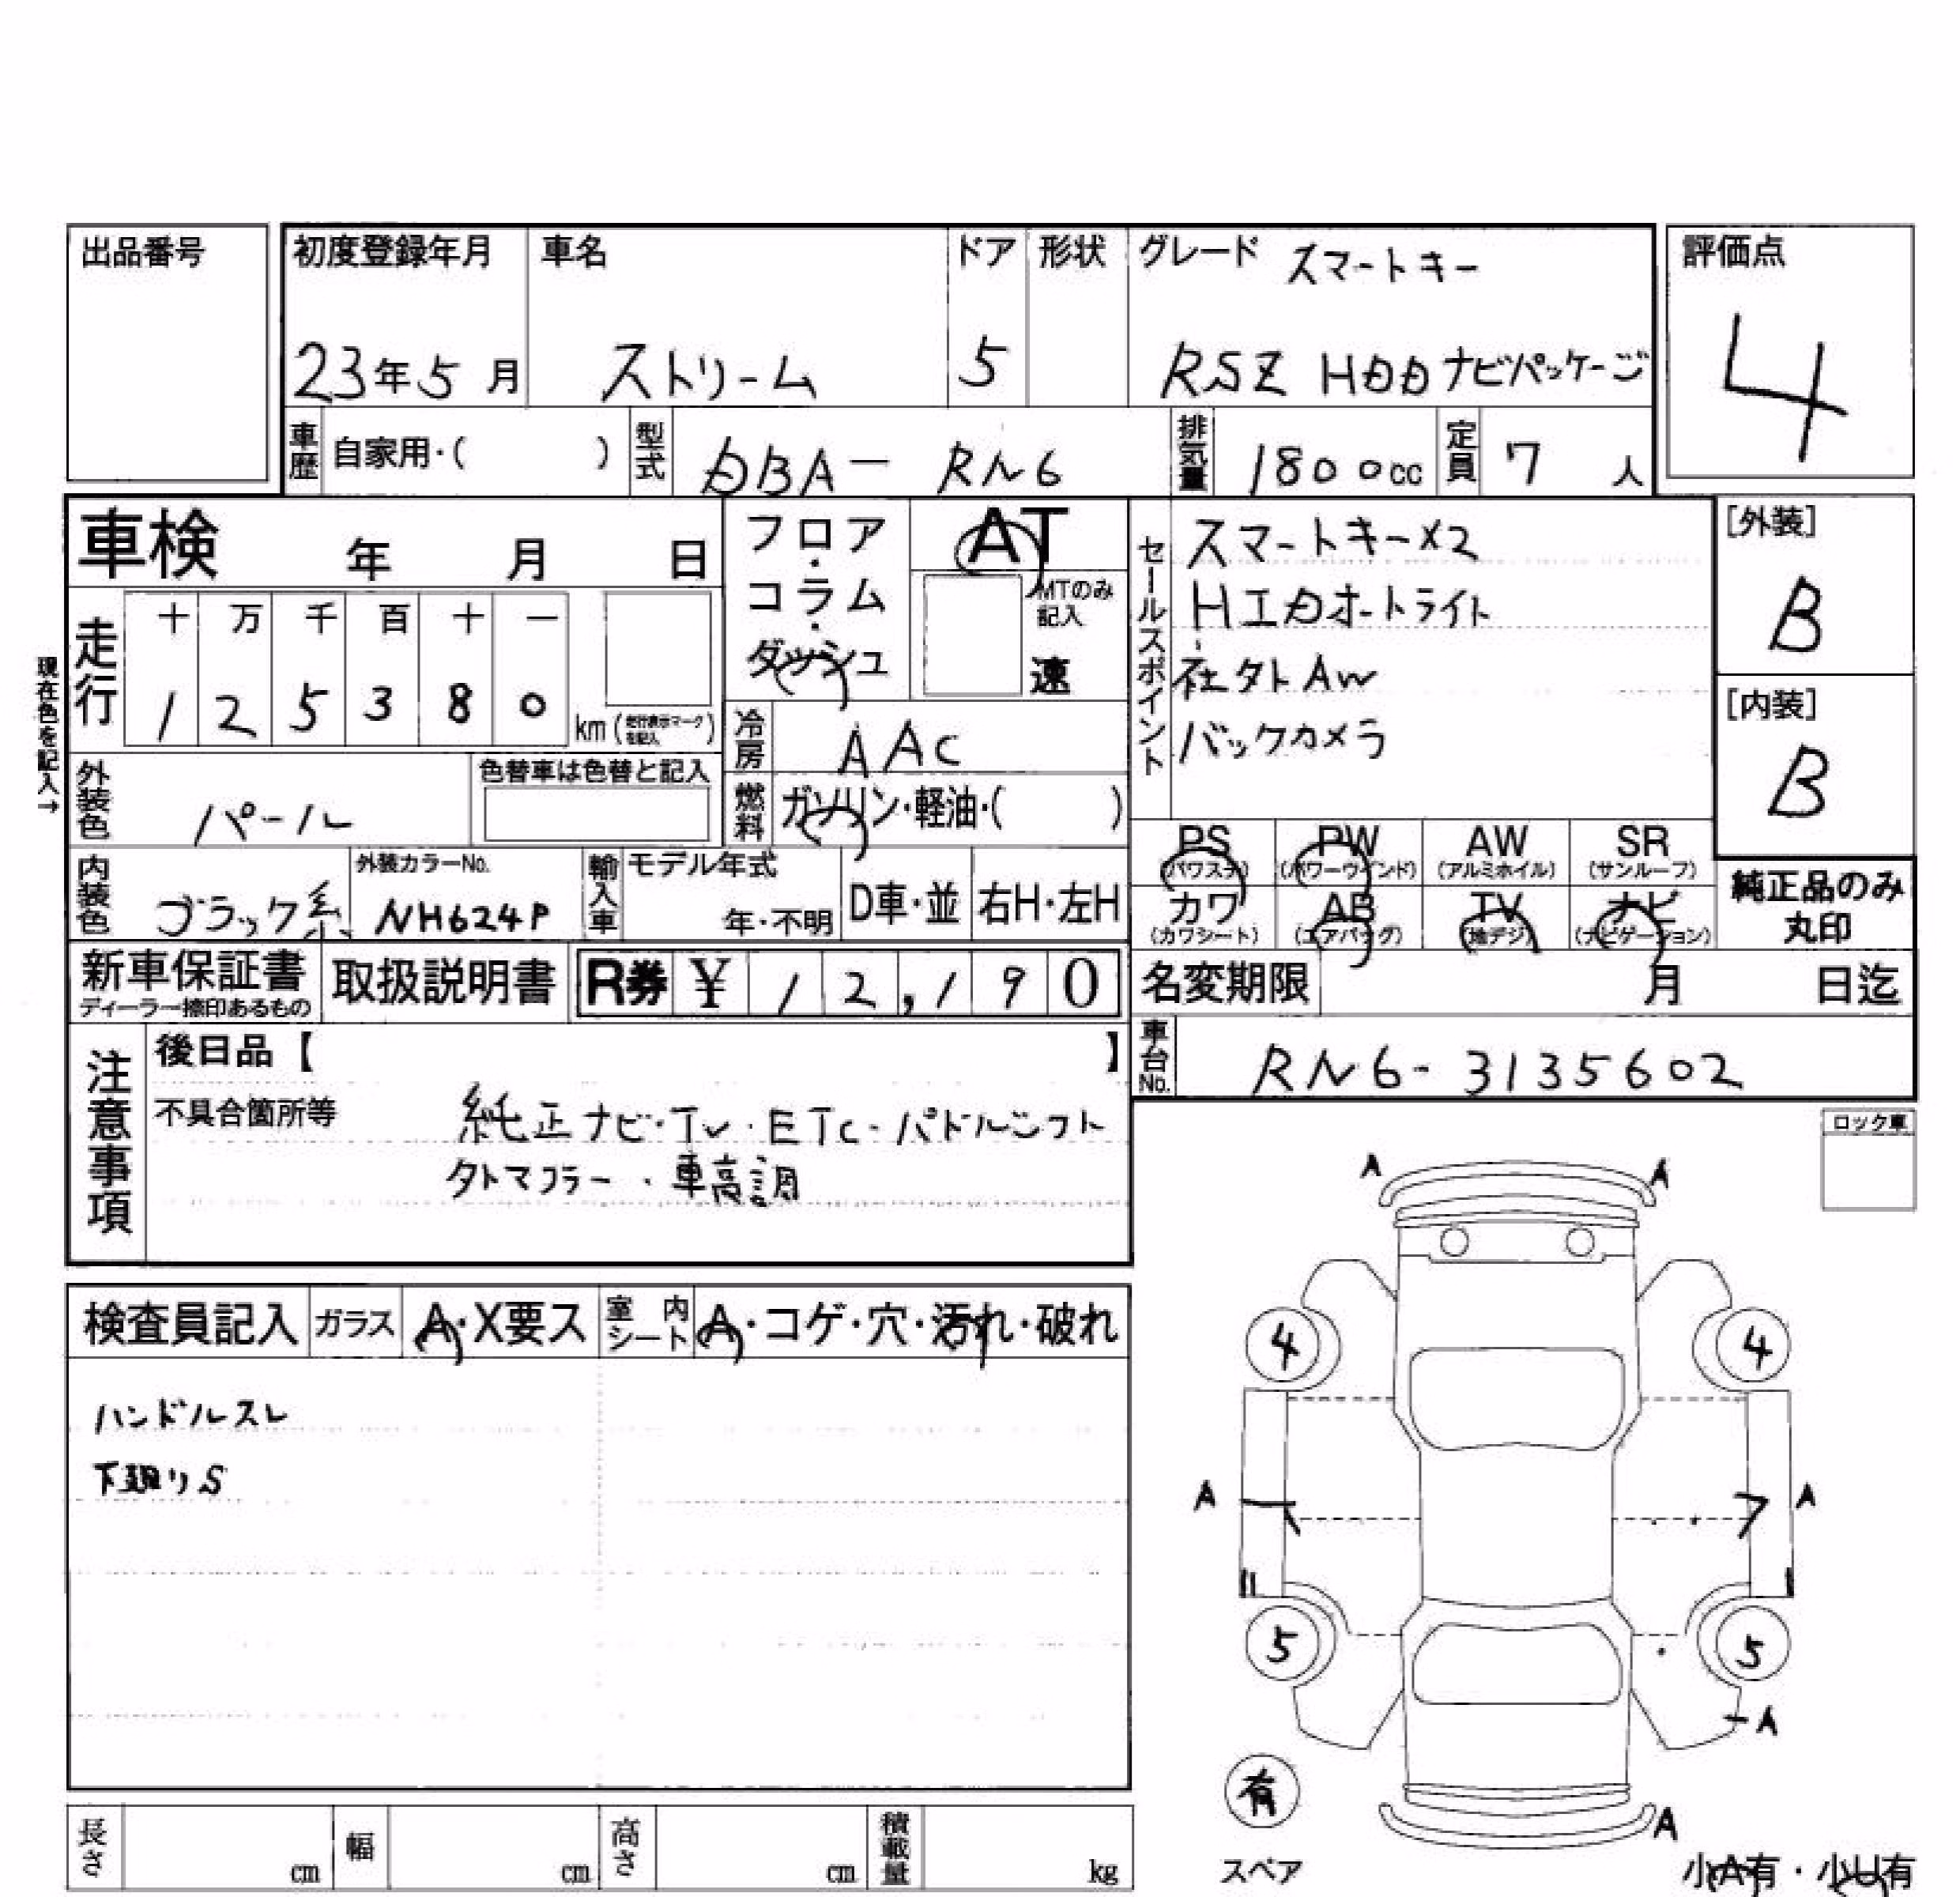 出品番号
初度登録年月 車名 ドア 形状 グレード スマートキー
評価点
23年5月 ストリーム 5 RSZ HDDナビパッケージ
4
車歴 自家用・( ) 型式 DBA- RN6 排気量 1800cc 定員 7人
車検 年 月 日
フロア・コラム・ダッシュ
AT
MTのみ記入
速
セールスポイント
スマートキー×2
HIDオートライト
社外AW
バックカメラ
[外装]
B
[内装]
B
現在色を記入→
走行 十 万 千 百 十 一
1 2 5 3 8 0 km (走行表示マークを記入)
冷房 AAC
外装色 パール 色替車は色替と記入
燃料 ガソリン・軽油・( )
PS (パワステ) PW (パワーウインド) AW (アルミホイル) SR (サンルーフ)
カワ (カワシート) AB (エアバッグ) TV (地デジ) ナビ (ナビゲーション)
純正品のみ丸印
内装色 ブラック系 外装カラーNo. NH624P 輸入車 モデル年式 年・不明 D車・並 右H・左H
新車保証書 ディーラー捺印あるもの 取扱説明書 R券 ¥ 12,190
名変期限 月 日迄
車台No. RN6-3135602
注意事項
後日品【 】
不具合箇所等 純正ナビ・TV・ETC・パドルシフト
外マフラー・車高調
ロック車
検査員記入 ガラス A・X要ス 室内シート A・コゲ・穴・汚れ・破れ
ハンドルスレ
下廻りS
A A
4 4
A A
5 5
A
有
スペア
A
小A有・小U有
長さ cm 幅 cm 高さ cm 積載量 kg